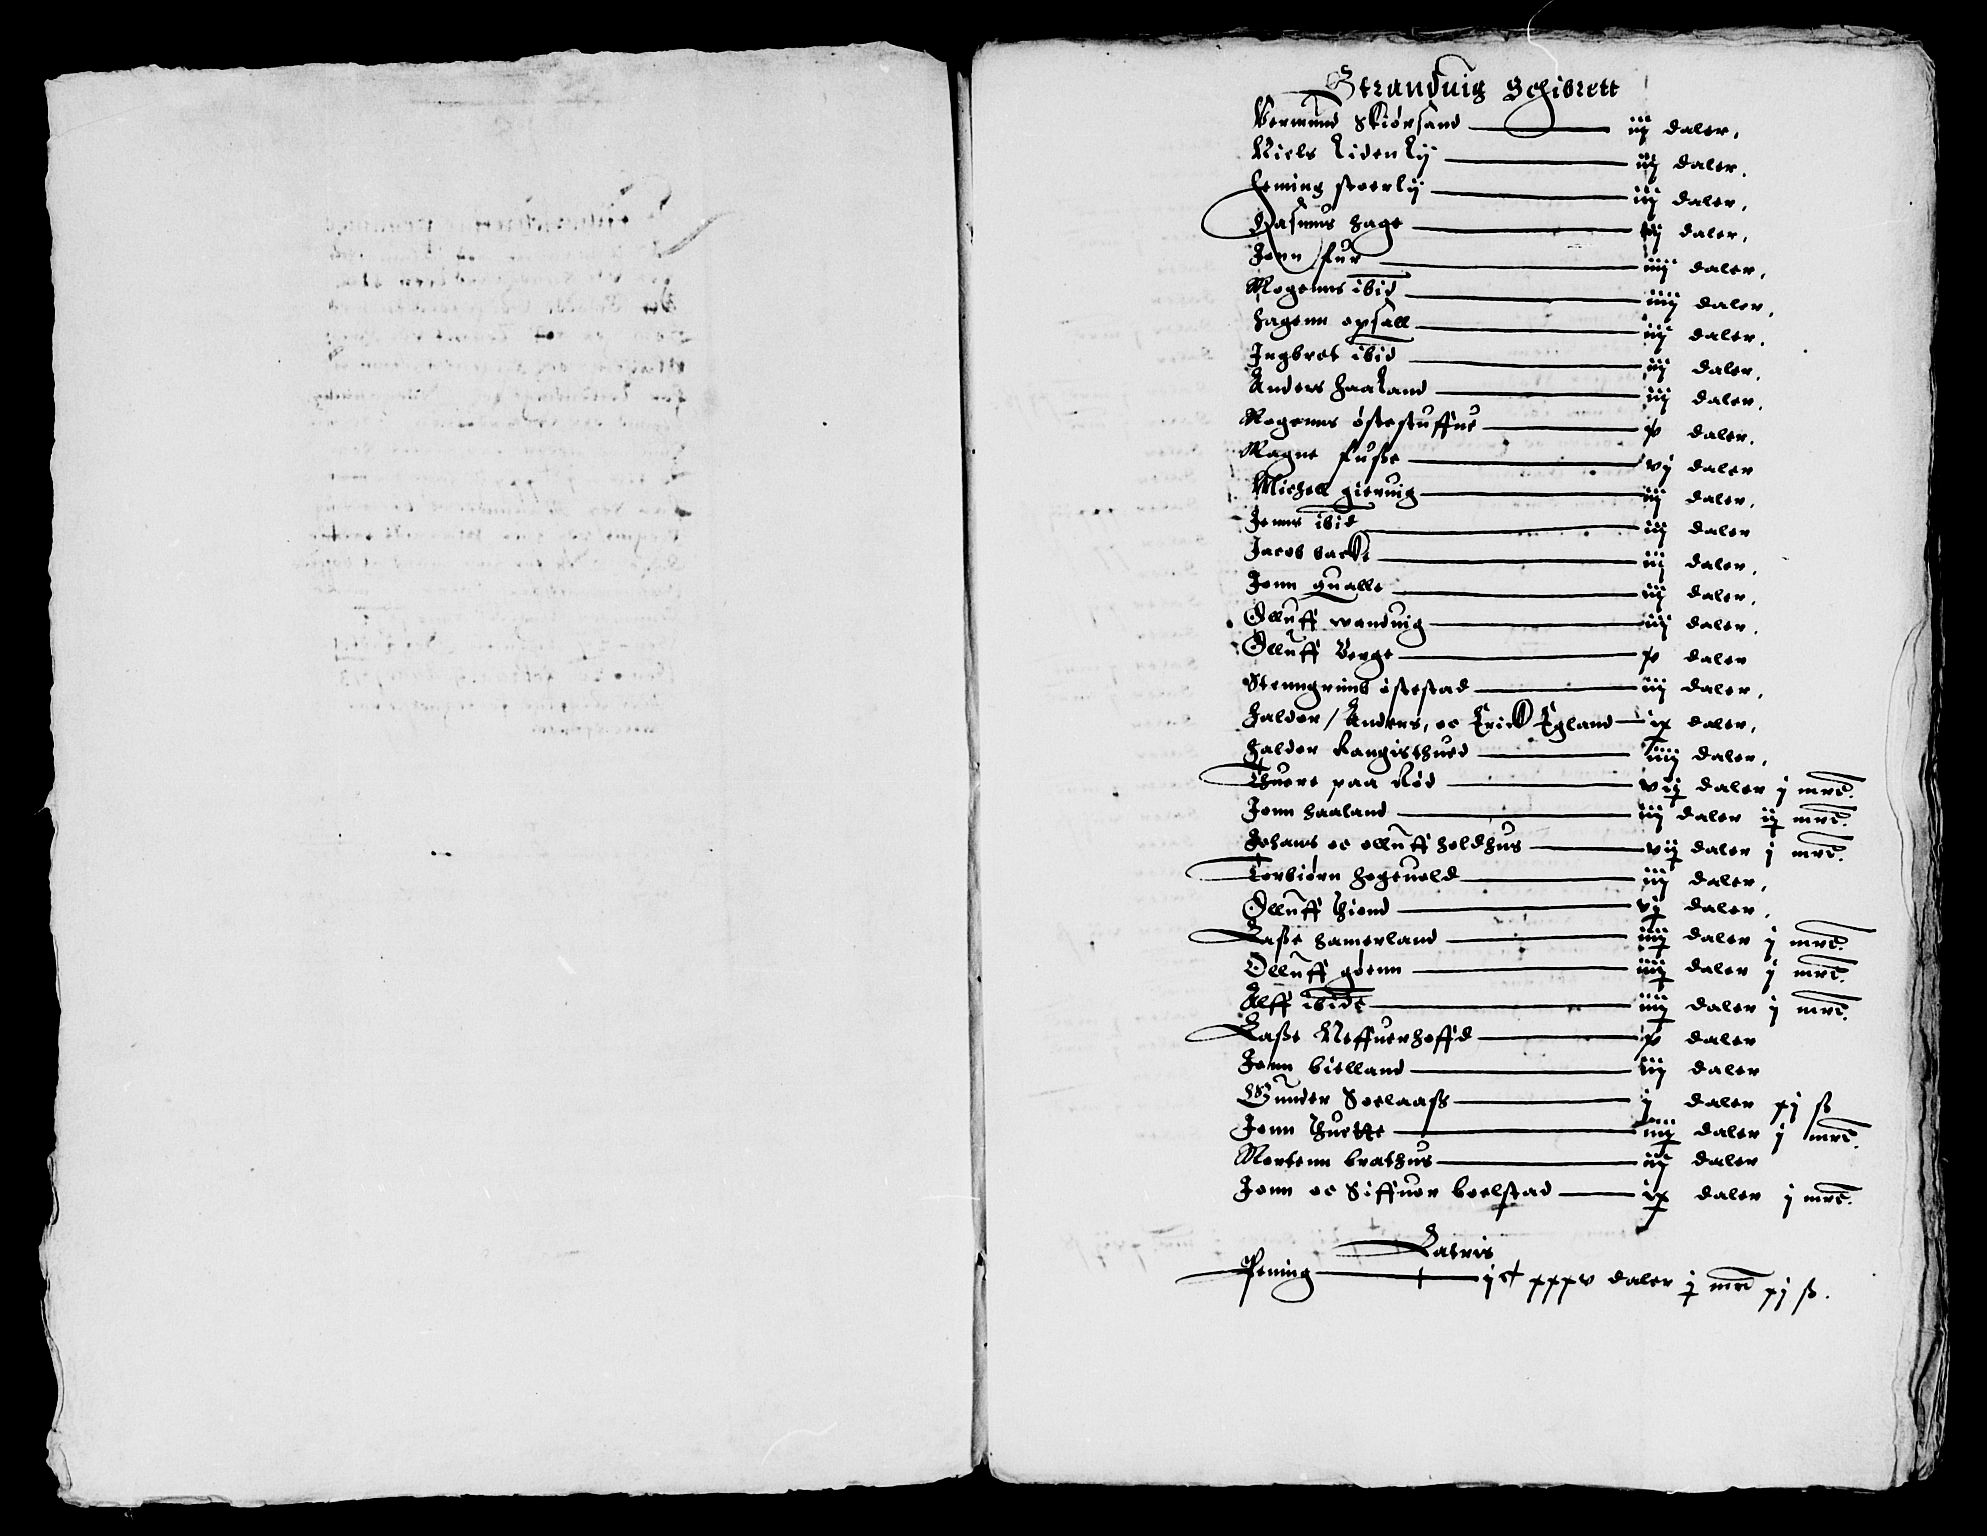 Stranduig Schibrett
Vermund Skiørsand — iij daler,
Niels Lidenly — iij daler.
Heming stoerly — iij daler,
Rasmus hage — vj daler,
Jonn fur — iiij daler,
Mogenns ibid — iiij daler,
hagenn opsall — iij daler.
Ingbret ibid — iij daler,
Anders haaland — iij daler,
Mogenns østestuffue — v daler.
Magne fusse — vj daler
Michell gieruig — iij daler,
Jenns ibid — iij daler
Jacob backe — iij daler,
Jonn qualle — iij daler,
Olluff wanduig — iij daler,
Olluff Berge — v daler
Stenngrimb østestad — iij daler,
halder / Anders, oc Erick Egland — ix daler,
halder Rangisthued — iiij daler,
Thuere paa Rød — vij daler j mrc.
Jonn haaland — iij daler ij mrc.
Johans oc olluff holdhus — vij daler j mrc.
Torbiørn hogeuold — iij daler,
Olluff Thiond — vj daler,
Lasse hamerland — iiij daler j mrc.
Olluff goenn — iiij daler j mrc.
Alff ibide — iiij daler j mrc.
Lasse Neffuerhoffd — v daler
Jonn bielland — iij daler
Gunder Soelaass — j daler xj ß
Jonn Thuette — iiij daler j mrc.
Mortenn brathus — iij daler
Jonn oc Siffuer boelstad — ix daler j mrc.
Lateris
Pening — jc xxxv daler j mrc xj ß.